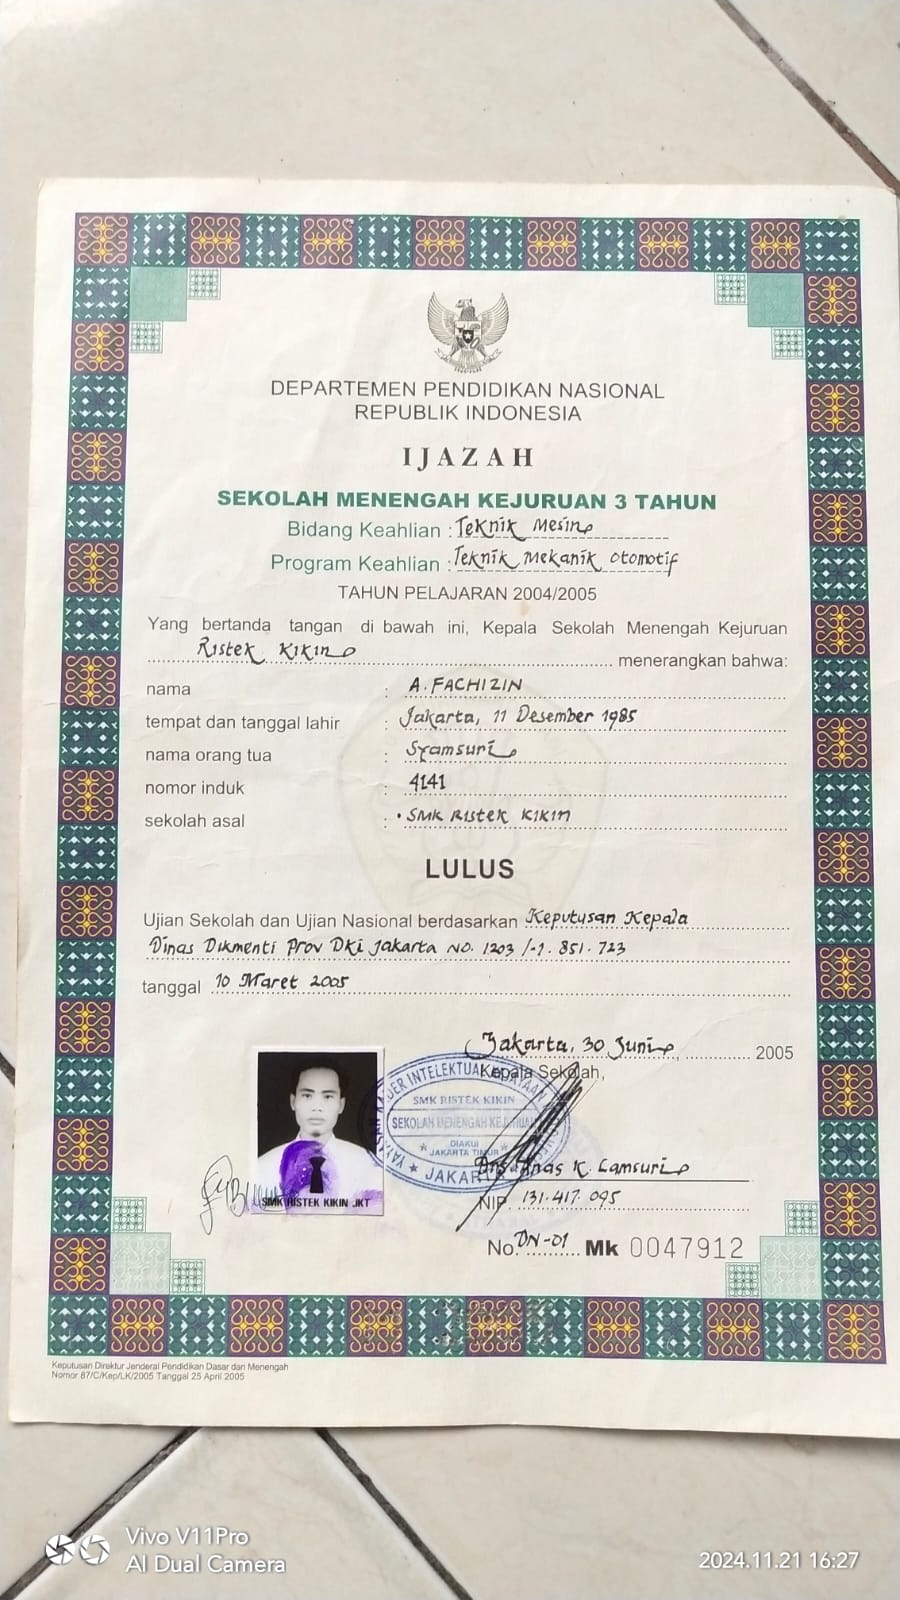 DEPARTEMEN PENDIDIKAN NASIONAL
REPUBLIK INDONESIA
IJAZAH
SEKOLAH MENENGAH KEJURUAN 3 TAHUN
Bidang Keahlian : Teknik Mesin
Program Keahlian : Teknik Mekanik Otomotif
TAHUN PELAJARAN 2004/2005
Yang bertanda tangan di bawah ini, Kepala Sekolah Menengah Kejuruan
Ristek Kikin menerangkan bahwa:
nama : A. FACHIZIN
tempat dan tanggal lahir : Jakarta, 11 Desember 1985
nama orang tua : Syamsuri
nomor induk : 4141
sekolah asal : SMK Ristek Kikin
LULUS
Ujian Sekolah dan Ujian Nasional berdasarkan Keputusan Kepala
Dinas Dikmenti Prov DKI Jakarta No. 1203/-1.851.723
tanggal 10 Maret 2005
Jakarta, 30 Juni 2005
Kepala Sekolah,
SMK RISTEK KIKIN
SEKOLAH MENENGAH KEJURUAN
DIAKUI
JAKARTA TIMUR
Drs. Anas K. Lamsuri
SMK RISTEK KIKIN JKT
NIP. 131.417.095
No. DN-01 Mk 0047912
Keputusan Direktur Jenderal Pendidikan Dasar dan Menengah
Nomor 87/C/Kep/LK/2005 Tanggal 25 April 2005
Vivo V11Pro
AI Dual Camera
2024.11.21 16:27